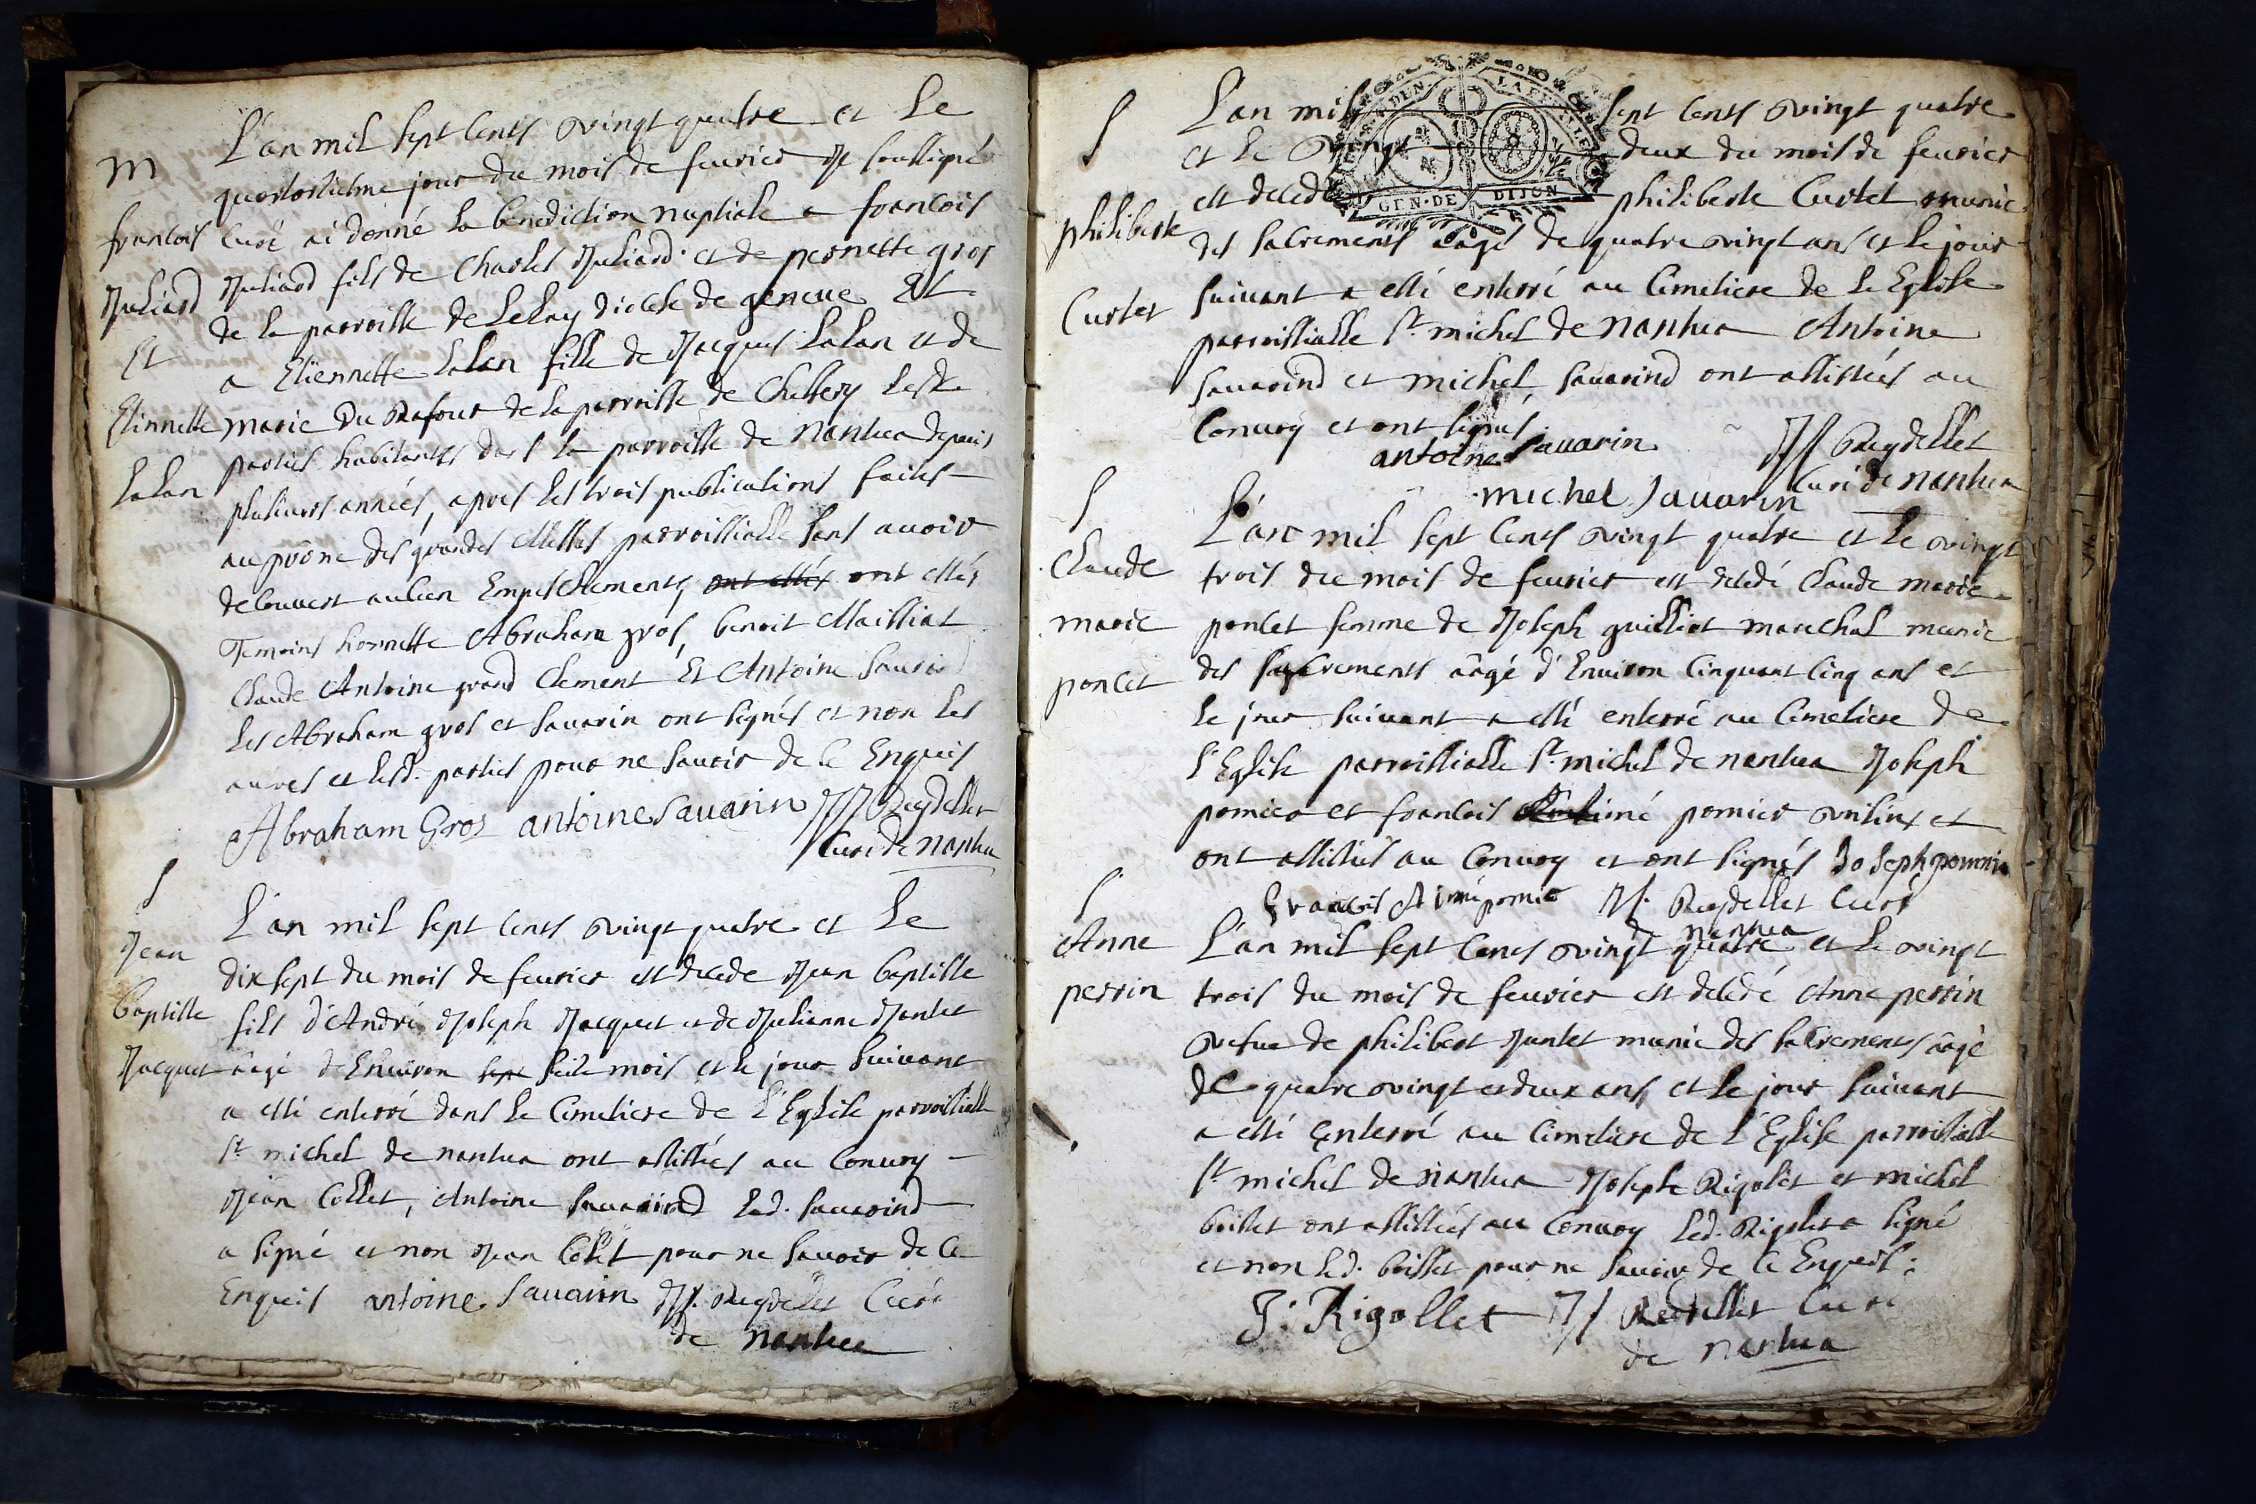 L'an mil sept cents vingt quatre et le
M
quatorsiesme jour du mois de feurier Je soussigné
francois
Curé ai donné la benediction nuptiale a francois
Juliard
Juliard fils de Charles Juliard et de pernette gros
de la parroisse de Lelay diocese de geneue Et
Et
a Etiennette Lalan fille de Jacques Lalan et de
Etinnette
marie Du Rafour de la parroisse de Chessery lesd.
parties habitantes dans la parroisse de Nantua depuis
Lalan
plusieurs années, apres les trois publications faites
au prône des grandes Messes parroissialle sans auoir
decouuert aucun Empeschements, ont estés ont estés
Temoins honnette Abraham gros, benoit Mailliat
Claude Antoine grand Clement Et Antoine Sauarin
les Abraham gros et Sauarin ont signés et non les
autres et lesd. parties pour ne sauoir de ce Enquis
Abraham Gros antoine Sauarin JJ Reydellet
Curé de Nantua
S
L'an mil sept cents vingt quatre et le
Jean
dix sept du mois de feurier est decede Jean baptiste
baptiste
fils d'André Joseph Jacquet et de Julienne Jantet
Jacquet
âagé d'Enuiron sept seite mois et le jour suiuant
a esté enterré dans le Cimetiere de L'Eglise parroissialle
St michel de nantua ont assistés au Conuoy
Jean Collet, Antoine Sauarind led. Sauarind
a signé et non Jean Collet pour ne sauoir de ce
Enquis antoine Sauarin JJ. Reydellet Curé
de Nantua
S
L'an mil sept cents vingt quatre
et le vingt deux du mois de feurier
GEN. DE DIJON
philiberte
est decedé philiberte Curtet munie
des sacrements âagé de quatre vingt ans et le jour
Curtet
suiuant a esté enterré au Cimetiere de L'Eglise
parroissialle St michel de Nantua Antoine
Sauarind et michel Sauarind ont assistées au
Conuoy et ont signés
antoine Sauarin JJ Reydellet
michel Sauarin Curé de Nantua
S
L'an mil sept cents vingt quatre et le vingt
Claude
trois du mois de feurier est decedé Claude marie
marie
poncet femme de Joseph guilliot marechal munie
poncet
des sacrements âagé d'Enuiron Cinquant Cinq ans et
le jour suiuant a esté enterré au Cimetiere de
l'Eglise parroissialle St michel de nantua Joseph
pomier et francois Aimé pomier et
ont assistés au Conuoy et ont signés Joseph pommier
francois Aimé pomié JJ. Reydellet Curé
nantua
S
Anne
L'an mil sept cents vingt quatre et le vingt
perrin
trois du mois de feurier est decedé Anne perrin
vefue de philibert Jantet munie des sacrements âagé
de quatre vingt et deux ans, et le jour suiuant
a esté enterré au Cimetiere de l'Eglise parroissialle
St michel de nantua Joseph Rigolet et michel
boisset ont assistées au Conuoy led. Rigolet a signé
et non led. boisset pour ne sauoir de ce Enquis.
J: Rigollet JJ Reydellet Curé
de nantua